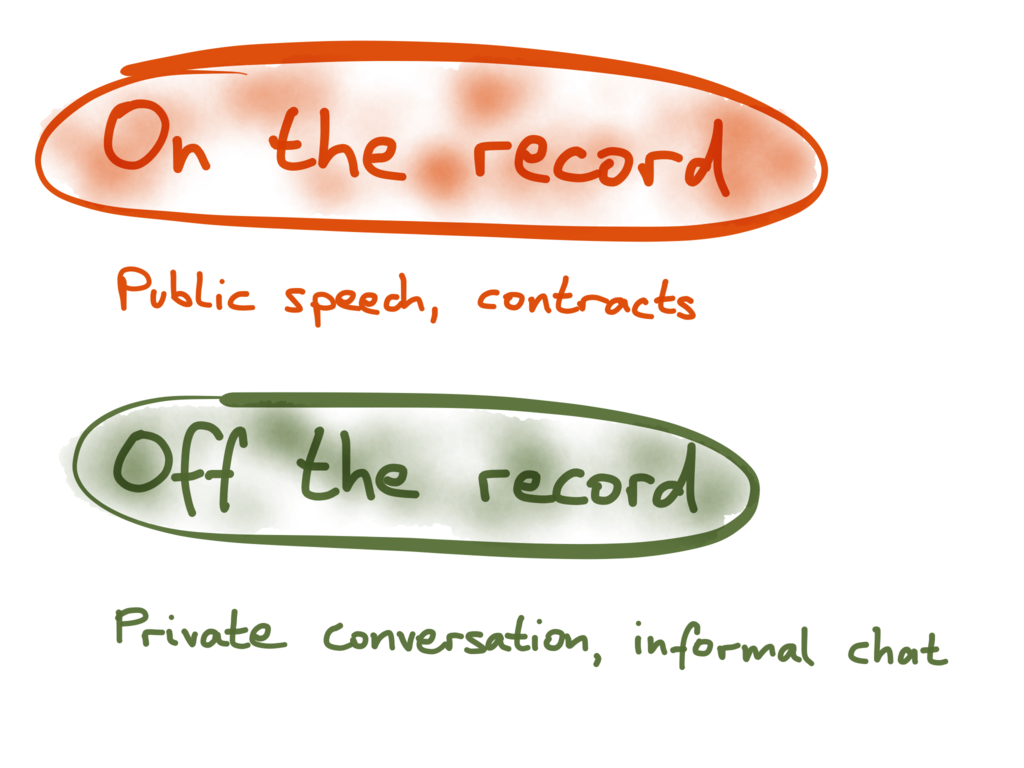 On the record
Public speech, contracts
Off the record
Private conversation, informal chat